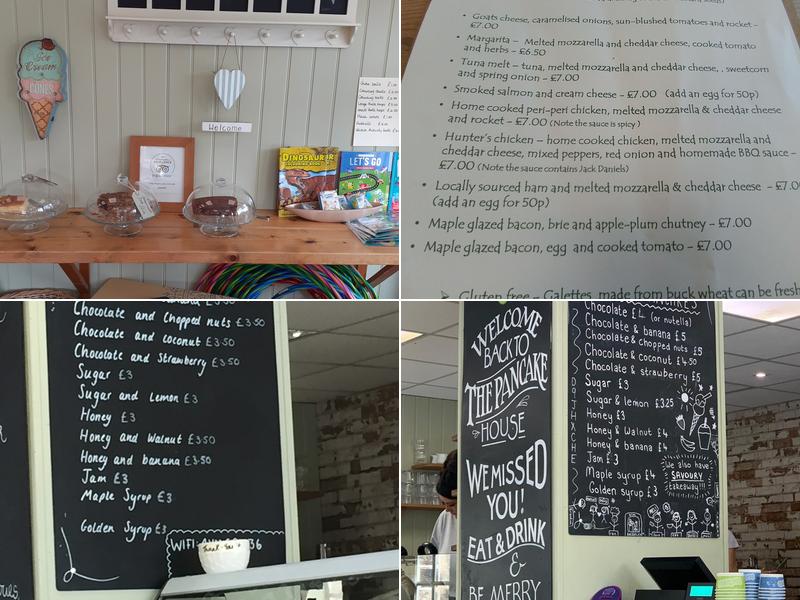 Ice
Cream
CONES
Welcome
DINOSAUR
COLOURING BOOK
LET'S GO
Goats cheese, caramelised onions, sun-blushed tomatoes and rocket –
£7.00
Margarita – Melted mozzarella and cheddar cheese, cooked tomato
and herbs – £6.50
Tuna melt – tuna, melted mozzarella and cheddar cheese, , sweetcorn
and spring onion – £7.00
Smoked salmon and cream cheese – £7.00 (add an egg for 50p)
Home cooked peri-peri chicken, melted mozzarella & cheddar cheese
and rocket – £7.00 (Note the sauce is spicy )
Hunter's chicken – home cooked chicken, melted mozzarella and
cheddar cheese, mixed peppers, red onion and homemade BBQ sauce –
£7.00 (Note the sauce contains Jack Daniels)
Locally sourced ham and melted mozzarella & cheddar cheese – £7.0
(add an egg for 50p)
Maple glazed bacon, brie and apple-plum chutney – £7.00
Maple glazed bacon, egg and cooked tomato – £7.00
Gluten free – Galettes, made from buck wheat can be fresh
banana £3.50
Chocolate and Chopped nuts £3.50
Chocolate and coconut £3.50
Chocolate and Strawberry £3.50
Sugar £3
Sugar and Lemon £3
Honey £3
Honey and Walnut £3.50
Honey and banana £3.50
Jam £3
Maple Syrup £3
Golden Syrup £3
WIFI:
36
WELCOME
BACK TO
THE PANCAKE
HOUSE
WE MISSED
YOU!
EAT & DRINK
&
BE MERRY
Chocolate £4 (or nutella)
Chocolate & banana £5
Chocolate & chopped nuts £5
Chocolate & coconut £4.50
Chocolate & strawberry £5
Sugar £3
Sugar & lemon £3.25
Honey £3
Honey & Walnut £4
Honey & banana £4
Jam £3
Maple syrup £4
Golden syrup £3
We also have
SAVOURY
takeaway!!!